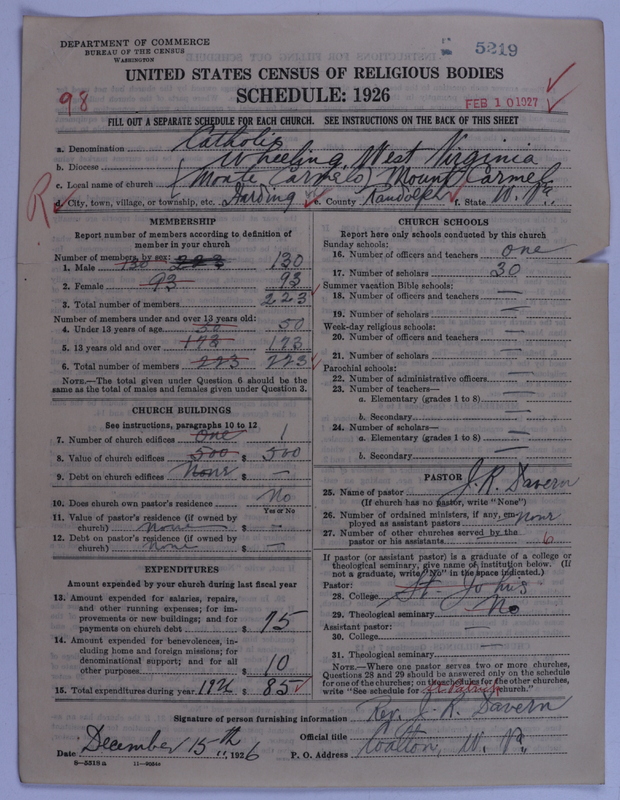 DEPARTMENT OF COMMERCE
BUREAU OF THE CENSUS
WASHINGTON
5219
UNITED STATES CENSUS OF RELIGIOUS BODIES
SCHEDULE: 1926
98
FEB 10 1927
FILL OUT A SEPARATE SCHEDULE FOR EACH CHURCH. SEE INSTRUCTIONS ON THE BACK OF THIS SHEET
a. Denomination Catholic
b. Diocese Wheeling, West Virginia
c. Local name of church (Monte Carmelo) Mount Carmel
R
d. City, town, village, or township, etc. Harding e. County Randolph f. State W. Va.
MEMBERSHIP
Report number of members according to definition of member in your church
Number of members, by sex:
1. Male 130 223 130
2. Female 93 93
3. Total number of members 223
Number of members under and over 13 years old:
4. Under 13 years of age 50 50
5. 13 years old and over 173 173
6. Total number of members 223 223
NOTE.—The total given under Question 6 should be the same as the total of males and females given under Question 3.
CHURCH BUILDINGS
See instructions, paragraphs 10 to 12
7. Number of church edifices One 1
8. Value of church edifices 500 $ 500
9. Debt on church edifices None $ —
10. Does church own pastor's residence No
Yes or No
11. Value of pastor's residence (if owned by church) none $ —
12. Debt on pastor's residence (if owned by church) none $ —
EXPENDITURES
Amount expended by your church during last fiscal year
13. Amount expended for salaries, repairs, and other running expenses; for improvements or new buildings; and for payments on church debt $ 75
14. Amount expended for benevolences, including home and foreign missions; for denominational support; and for all other purposes $ 10
15. Total expenditures during year 1926 $ 85
CHURCH SCHOOLS
Report here only schools conducted by this church
Sunday schools:
16. Number of officers and teachers one
17. Number of scholars 30
Summer vacation Bible schools:
18. Number of officers and teachers —
19. Number of scholars —
Week-day religious schools:
20. Number of officers and teachers —
21. Number of scholars —
Parochial schools:
22. Number of administrative officers —
23. Number of teachers—
a. Elementary (grades 1 to 8) —
b. Secondary —
24. Number of scholars—
a. Elementary (grades 1 to 8) —
b. Secondary —
PASTOR
25. Name of pastor J. R. Davern
(If church has no pastor, write "None")
26. Number of ordained ministers, if any, employed as assistant pastors none
27. Number of other churches served by the pastor or his assistants 6
If pastor (or assistant pastor) is a graduate of a college or theological seminary, give name of institution below. (If not a graduate, write "No" in the space indicated.)
Pastor:
28. College St. Johns
29. Theological seminary No
Assistant pastor:
30. College —
31. Theological seminary —
NOTE.—Where one pastor serves two or more churches, Questions 28 and 29 should be answered only on the schedule for one of the churches; on the schedule for the other churches, write "See schedule for St. Patrick church."
Signature of person furnishing information Rev. J. R. Davern
Official title
Date December 15th, 1926 P. O. Address Coalton, W. Va.
8—5318a 11—9034a